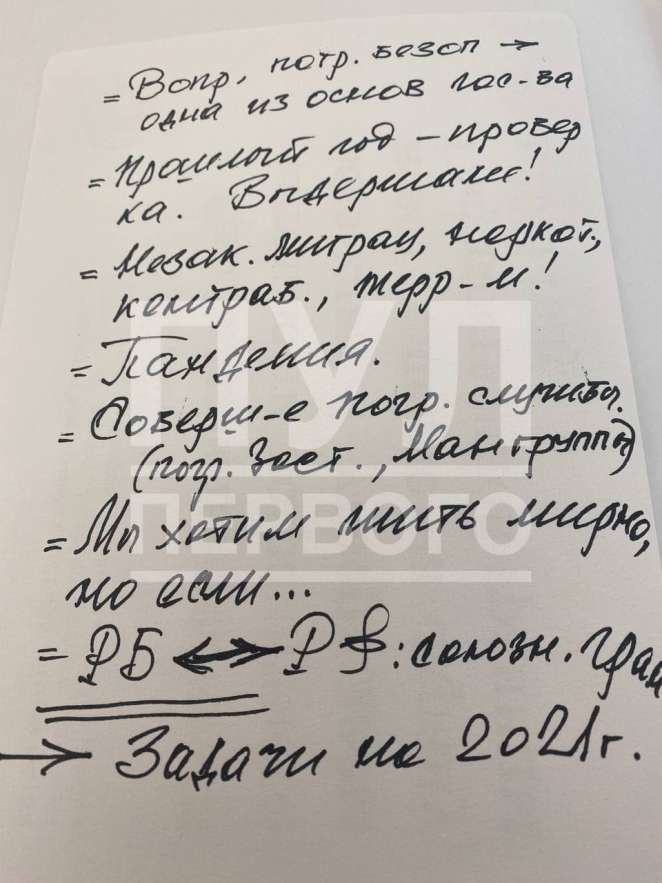 = Вопр. погр. безоп →
одна из основ гос-ва
= Прошлый год - провер
ка. Выдержали!
= Незак. миграц, наркот.,
контраб., терр-м!
= Пандемия.
= Соверш-е погр. службы.
(погр. Заст., Мангруппы)
= Мы хотим жить мирно,
но если...
= РБ ↔ РФ: союзн. гран
→ Задачи на 2021г.
ПУЛ
ПЕРВОГО